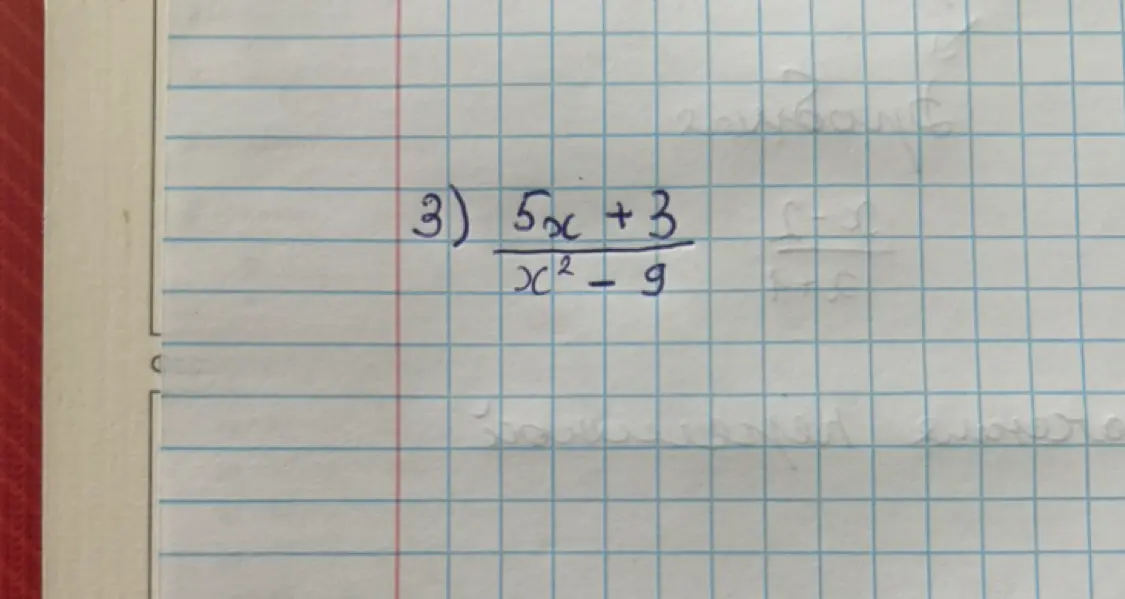 3) 5x + 3
x² - 9